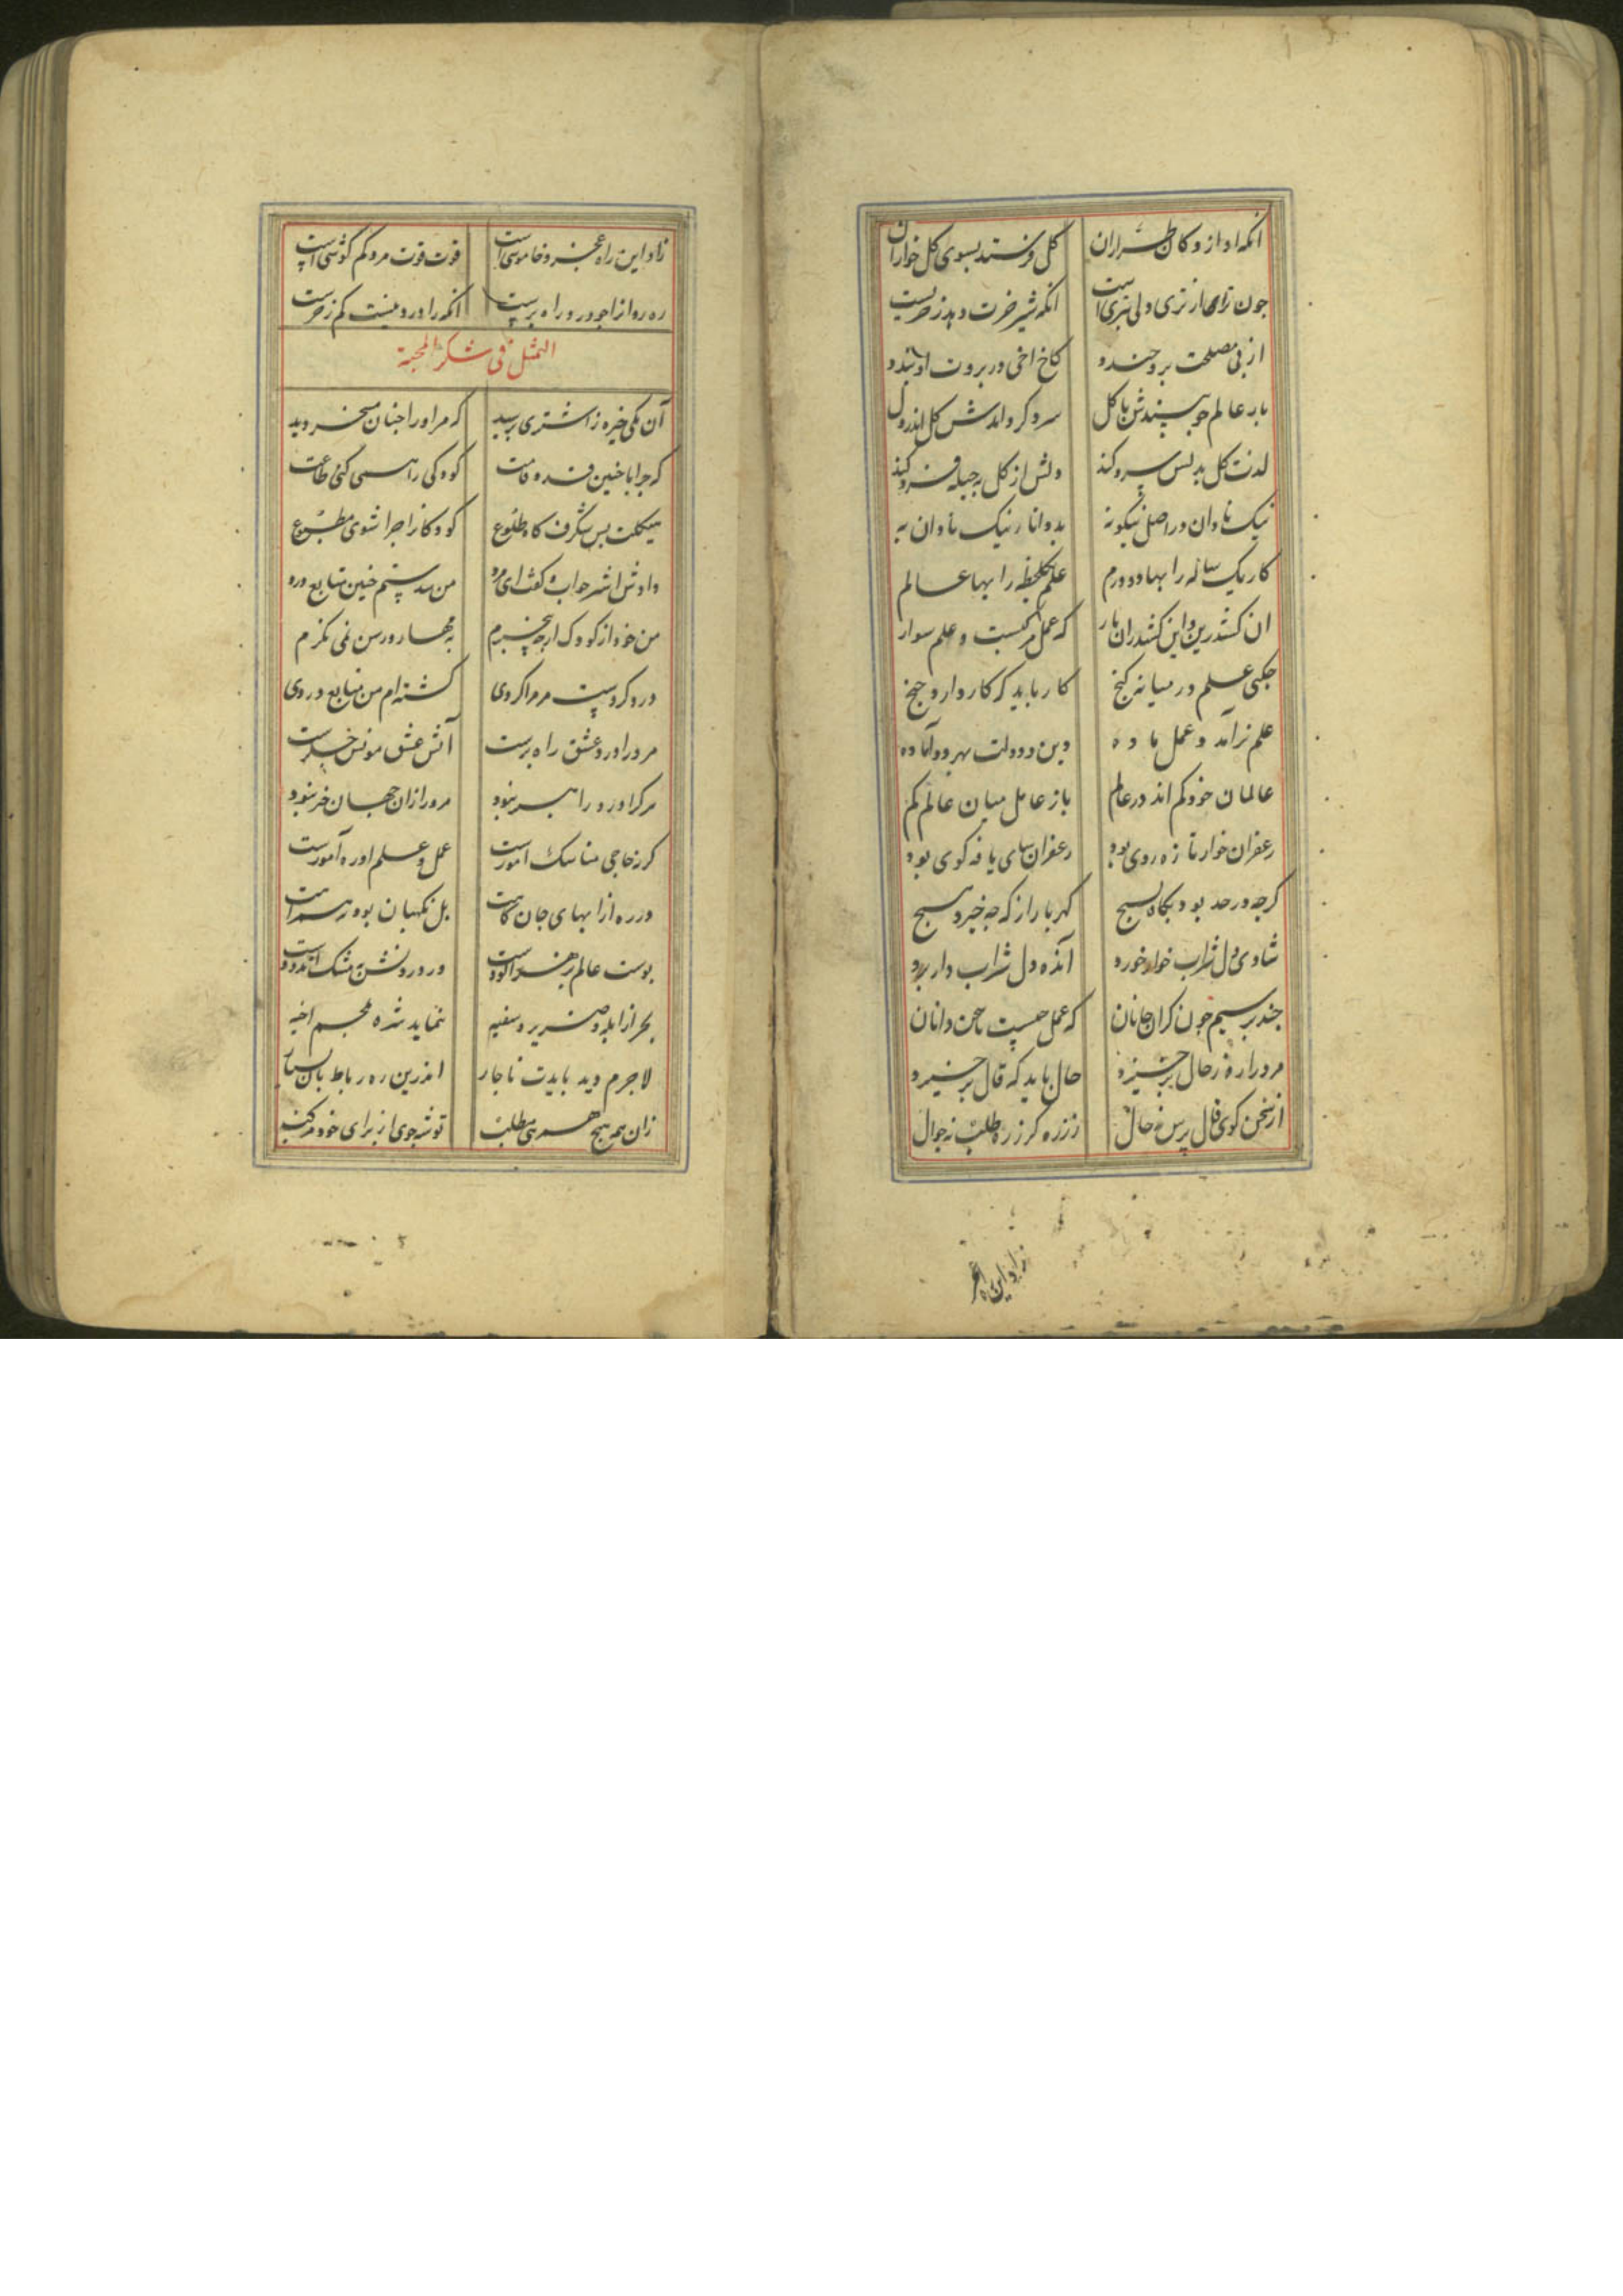 انکه او از دکان طراران کل فرستد بسوی کل خواران
انکه شیر خرت دهد ز خریست
از پی مصلحت برو خندد کاخ اخی در بروت او بندد
با کل سرد کرداندش کل اندر دل
لذت کل بدلش سرد کند دلش از کل به حیله فرد کند
نیک نادان در اصل نیکو نه بد دانا ز نیک نادان به
کار یک ساله را بها دو درم علم یک لحظه را بها عالم
ان کشد زین و این کشد زان بار که عمل مرکبست و علم سوار
علم در میانه کنج کار باید که کار دارد خنج
علم نر آمد و عمل ماده دین و دولت بهر دو آماده
عالمان خود کم اند در عالم باز عامل میان عالم کم
زعفران خوار تازه روی بود زعفران سای یافه کوی بود
کرچه در حد بود بکاه بسیج کهربا را ز که چه خیزد هیج
شادی دل شراب خوار خورد انده دل شراب دار برد
چند پرسیم چون کران جانان که عمل چیست با سخن دانان
مرد را ره ز حال برخیزد حال باید که قال برخیزد
از سخن کوی قال پرس نه حال ز زره کر زره طلب نه جوال
زاد این راه عجز
زاد این راه عجز و خاموشی است قوت و قوت مرد کم کوشی است
ره رو انرا چو درد راه برست انکه را درد نیست کم ز خرست
التمثل فی شکر المحبة
آن یکی خیره ز اشتری پرسید که مر او را چنان مسخر دید
که چرا با چنین قد و قامت کودکی را همی کنی طاعت
هیکلت بس شکرف کاه طلوع کودکانرا چرا شوی مطبوع
دادش اشتر جواب کفت ای مرد من نیستم چنین متابع درد
من خود از کودک ارچه بیخبرم به مهار و رسن نمی نکرم
درد کردست مر مرا کردی کشته ام من متابع دردی
مرد را درد عشق راه برست آتش عشق مونس جکرست
هرکرا درد راهبر نبود مرد را زان جهان خبر نبود
کر ز حاجی مناسک آموزست عمل و علم او ره آموزست
در ره از ابلهی جان کاهست بل نکهبان بود رهست
پوست عالم زهر آلودست ور درونش به مشک اندودست
بجز از ابله و ضریر و سفیه ننماید شده مجسم
لاجرم دید بایدت ناچار اندرین ره رباط
زان همه هیچ همرهی مطلب توشه جوی از برای خود